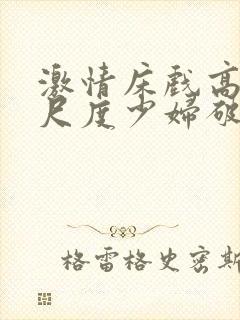 激情床戲高
尺度少婦破
格雷格史密斯